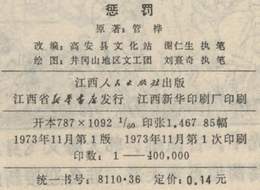 惩罚
原著：管桦
改编：高安县文化站 谢仁生 执笔
绘图：井冈山地区文工团 刘熹奇 执笔
江西人民出版社出版
江西省新华书店发行 江西新华印刷厂印刷
开本787×1092 1/60 印张1.467 85幅
1973年11月第1版 1973年11月第1次印刷
印数：1——400,000
统一书号：8110·36 定价：0.14元